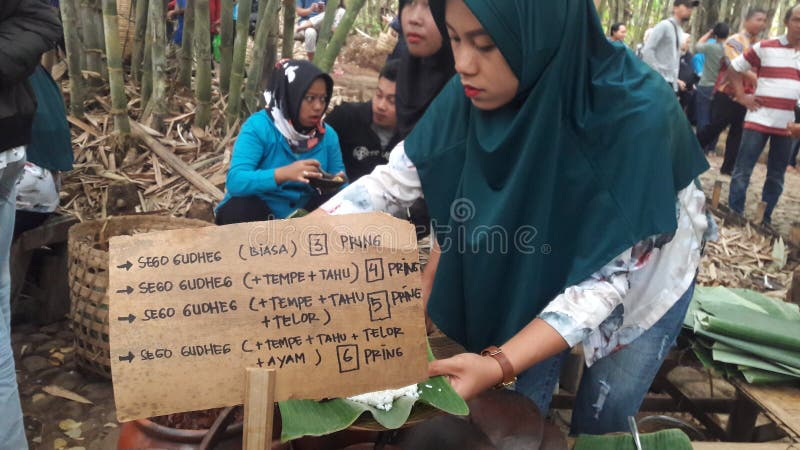 → SEGO GUDHEG (BIASA) 3 PRING
→ SEGO GUDHEG (+TEMPE+TAHU) 4 PRING
→ SEGO GUDHEG (+TEMPE +TAHU +TELOR) 5 PRING
→ SEGO GUDHEG (+TEMPE+TAHU+TELOR +AYAM) 6 PRING